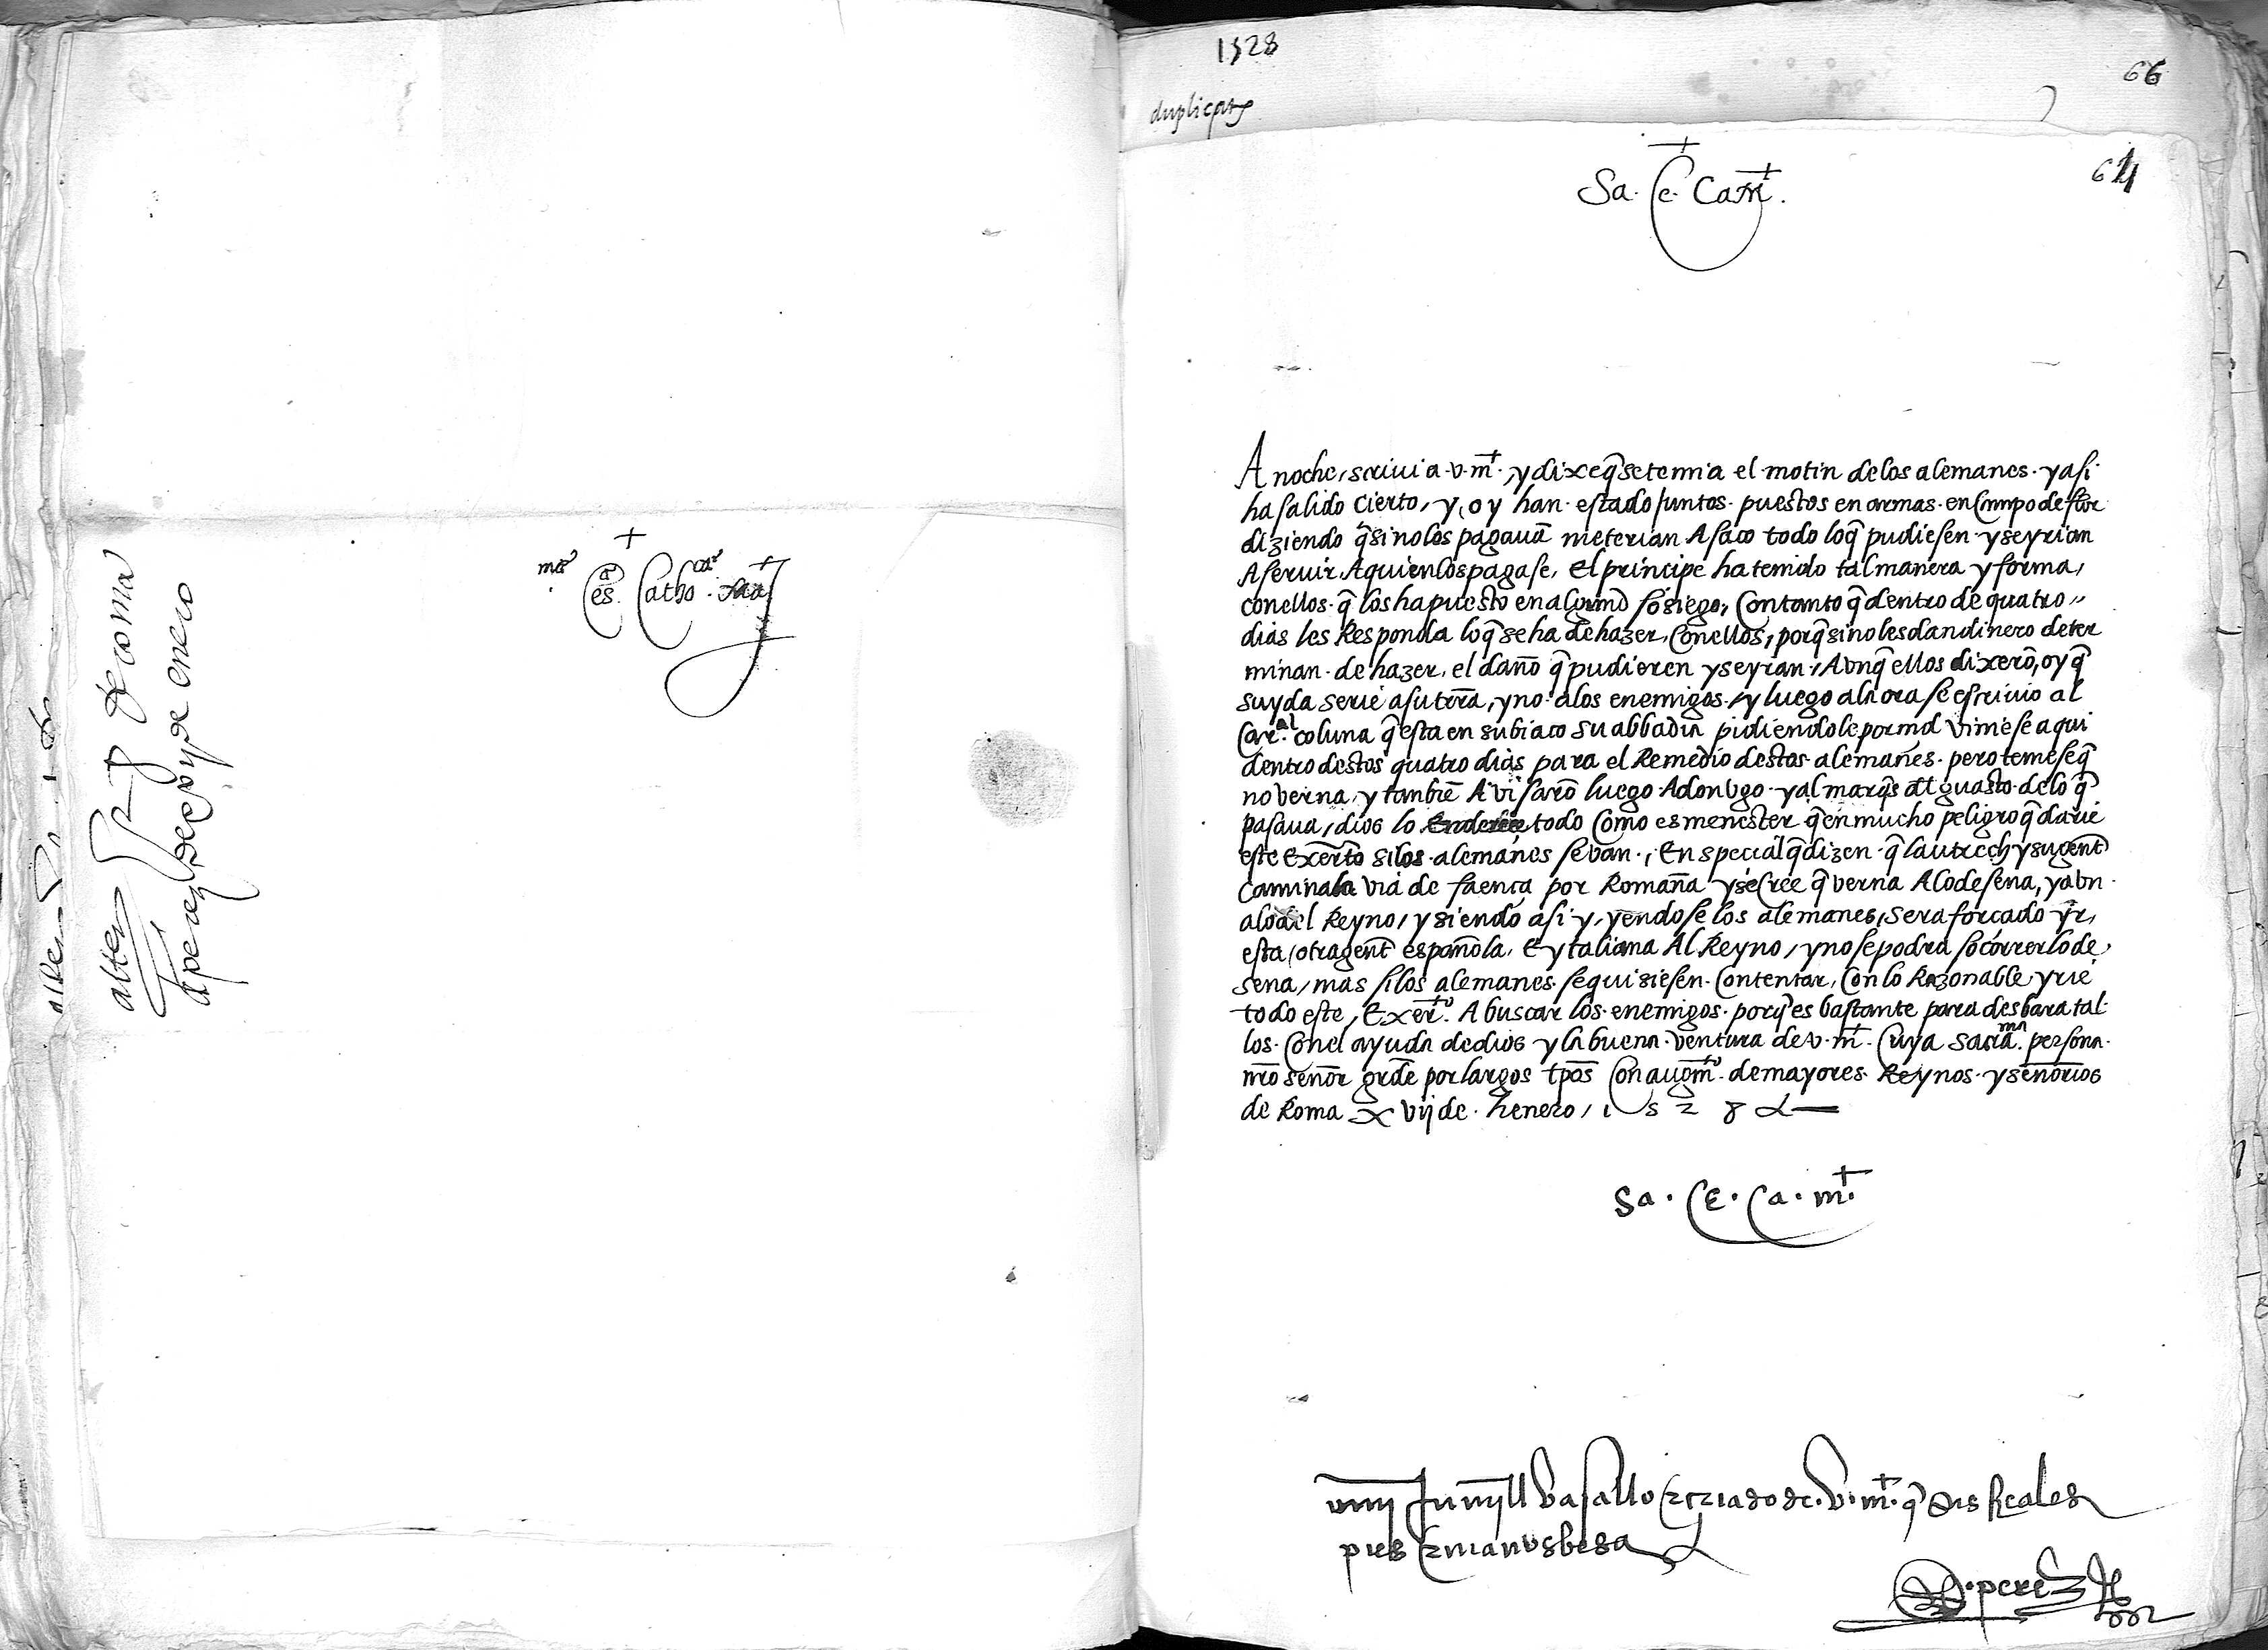 ma.
Ces. Catho. ma.t
al Rey
A su mt. de Roma
de perez de xvij de enero
1528
duplicata
66
64
Sa. Ce. Ca. mt.
A noche, scriui a .v. mt., y dixe q̃ se temia el motin delos alemanes. y asi.
ha salido cierto, y, oy han. estado juntos. puestos en armas. en Campo de flor
diziendo q̃ sino los pagauã meterian A saco todo loq̃ pudiesen. y se yrian
A seruir, Aquien los pagase, El principe ha tenido tal manera y forma,
conellos. q̃ los ha puesto en algund sosiego, Con tanto q̃ dentro de quatro
dias les Responda loq̃ se ha de hazer, Conellos, porq̃ sino les dan dinero deter
minan. de hazer, el daño q̃ pudieren y se yrian, Avnq̃ ellos dixerõ, oy q̃
su yda serie a su trr̃a, y no. alos enemigos. / y luego ala ora se escriuio al
Car.al coluna q̃ esta en subiaco su abbadia pidiendole por md viniese aqui
dentro destos quatro dias para el Remedio destos. alemanes. pero temese q̃
no verna, y tanbiẽ Avisarõ luego Adon vgo. y al marq̃s del guasto. delo q̃
pasaua, dios lo Enderece todo Como es menester q̃ en mucho peligro q̃darie
este Exerc̃to si los. alemanes se van., En special q̃ dizen. q̃ lautrech y su gent̃
Camina la via de faença por Romaña y se cree q̃ verna Alo de sena, y avn.
alo del Reyno, y siendo asi y, yendose los alemanes, sera forcado yr,
esta, otra gent̃ española, E ytaliana Al Reyno, y no se podra socorrer lo de,
sena, mas si los alemanes. se quisiesen. Contentar, Con lo Razonable yrie
todo este, Exer.to A buscar los. enemigos. porq̃ es bastante para desbaratal
los. Conel ayuda de dios y la buena. ventura de v. mt. Cuya sacra.ma persona.
nro señor gr̃de por largos tp̃os Con augm.to de mayores. Reynos. y señorios
de Roma xvij de. henero, 1528
Sa. Ce. Ca. mt.
muy humill vasallo E criado de. v. mt. q̃ sus Reales
pies E manos besa
perez